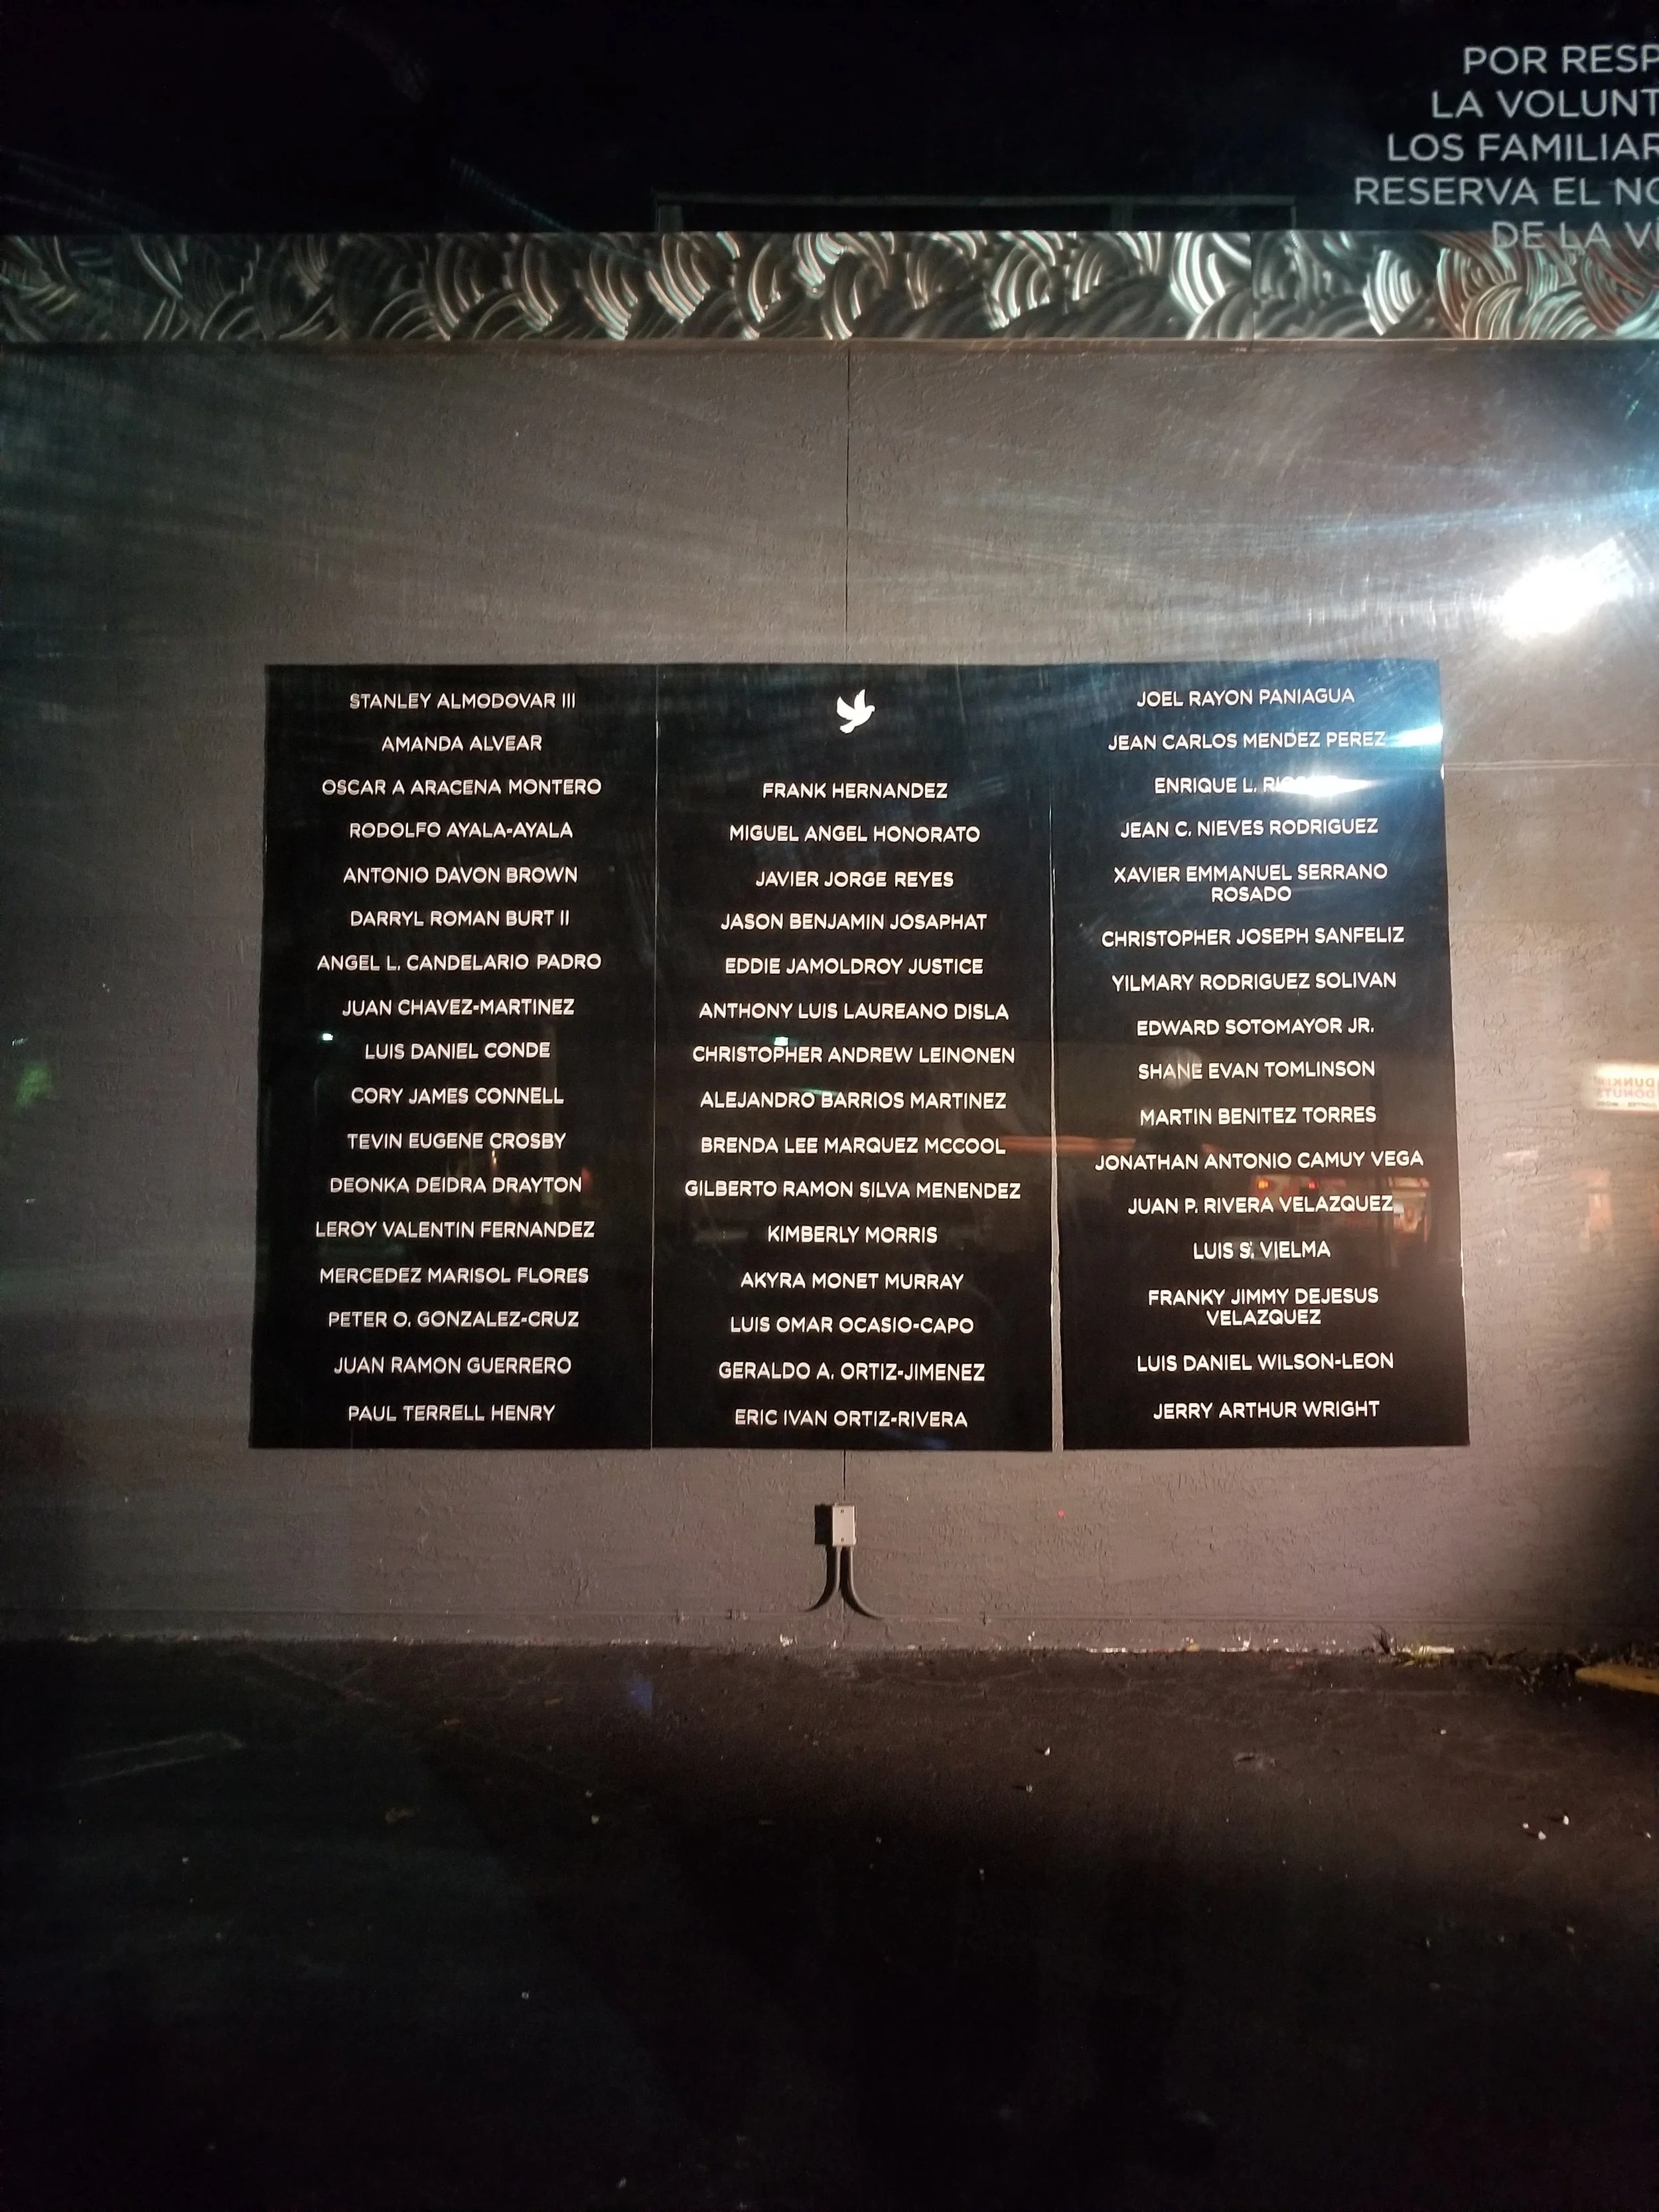 POR RESP
LA VOLUNT
LOS FAMILIAR
RESERVA EL NO
DE LA VÍ
STANLEY ALMODOVAR III
AMANDA ALVEAR
OSCAR A ARACENA MONTERO
RODOLFO AYALA-AYALA
ANTONIO DAVON BROWN
DARRYL ROMAN BURT II
ANGEL L. CANDELARIO PADRO
JUAN CHAVEZ-MARTINEZ
LUIS DANIEL CONDE
CORY JAMES CONNELL
TEVIN EUGENE CROSBY
DEONKA DEIDRA DRAYTON
LEROY VALENTIN FERNANDEZ
MERCEDEZ MARISOL FLORES
PETER O. GONZALEZ-CRUZ
JUAN RAMON GUERRERO
PAUL TERRELL HENRY
FRANK HERNANDEZ
MIGUEL ANGEL HONORATO
JAVIER JORGE REYES
JASON BENJAMIN JOSAPHAT
EDDIE JAMOLDROY JUSTICE
ANTHONY LUIS LAUREANO DISLA
CHRISTOPHER ANDREW LEINONEN
ALEJANDRO BARRIOS MARTINEZ
BRENDA LEE MARQUEZ MCCOOL
GILBERTO RAMON SILVA MENENDEZ
KIMBERLY MORRIS
AKYRA MONET MURRAY
LUIS OMAR OCASIO-CAPO
GERALDO A. ORTIZ-JIMENEZ
ERIC IVAN ORTIZ-RIVERA
JOEL RAYON PANIAGUA
JEAN CARLOS MENDEZ PEREZ
ENRIQUE L.
JEAN C. NIEVES RODRIGUEZ
XAVIER EMMANUEL SERRANO
ROSADO
CHRISTOPHER JOSEPH SANFELIZ
YILMARY RODRIGUEZ SOLIVAN
EDWARD SOTOMAYOR JR.
SHANE EVAN TOMLINSON
MARTIN BENITEZ TORRES
JONATHAN ANTONIO CAMUY VEGA
JUAN P. RIVERA VELAZQUEZ
LUIS S. VIELMA
FRANKY JIMMY DEJESUS
VELAZQUEZ
LUIS DANIEL WILSON-LEON
JERRY ARTHUR WRIGHT
DUNKIN'
DONUTS